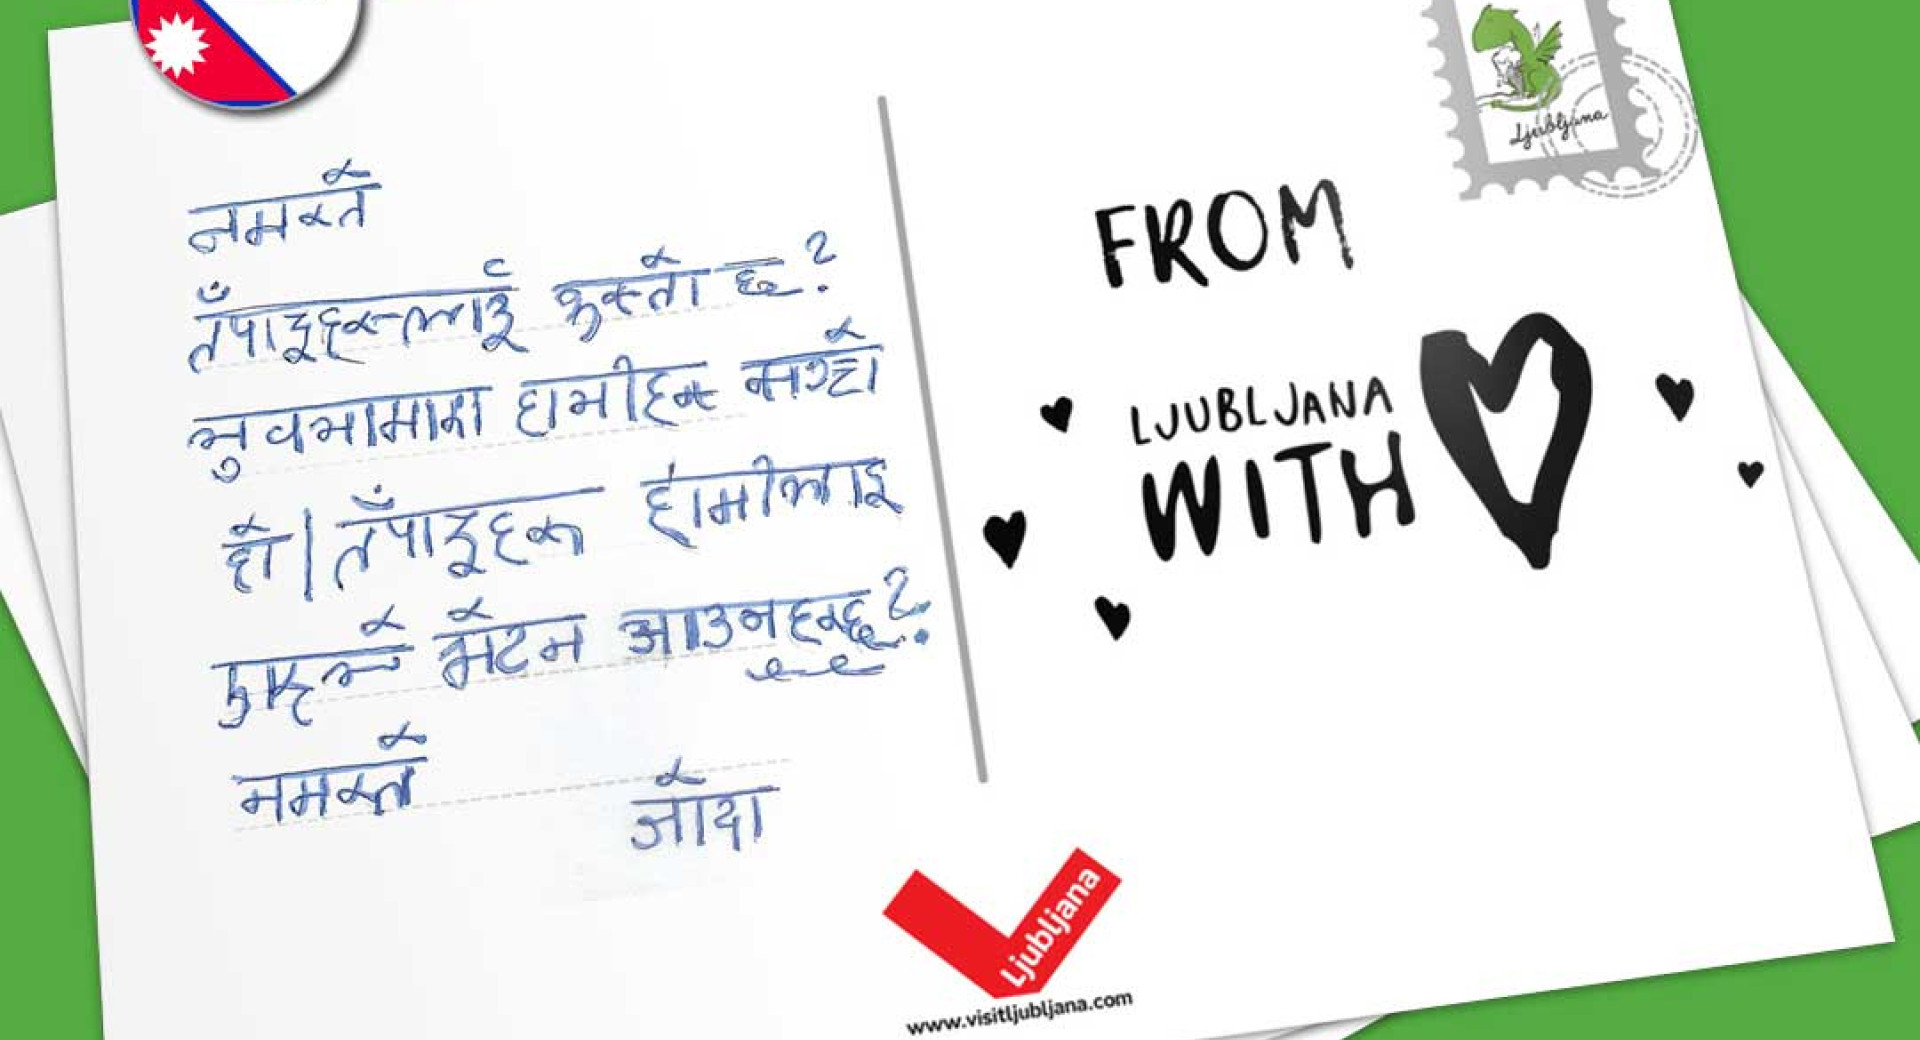 नमस्ते
तँपाइहरूलाई कस्तो छ?
हामीहरू सञ्चो
हो। तँपाइहरू हामीलाइ
भेटन आउनुहुन्छ?
नमस्ते
FROM
LJUBLJANA
WITH
Ljubljana
Ljubljana
www.visitljubljana.com